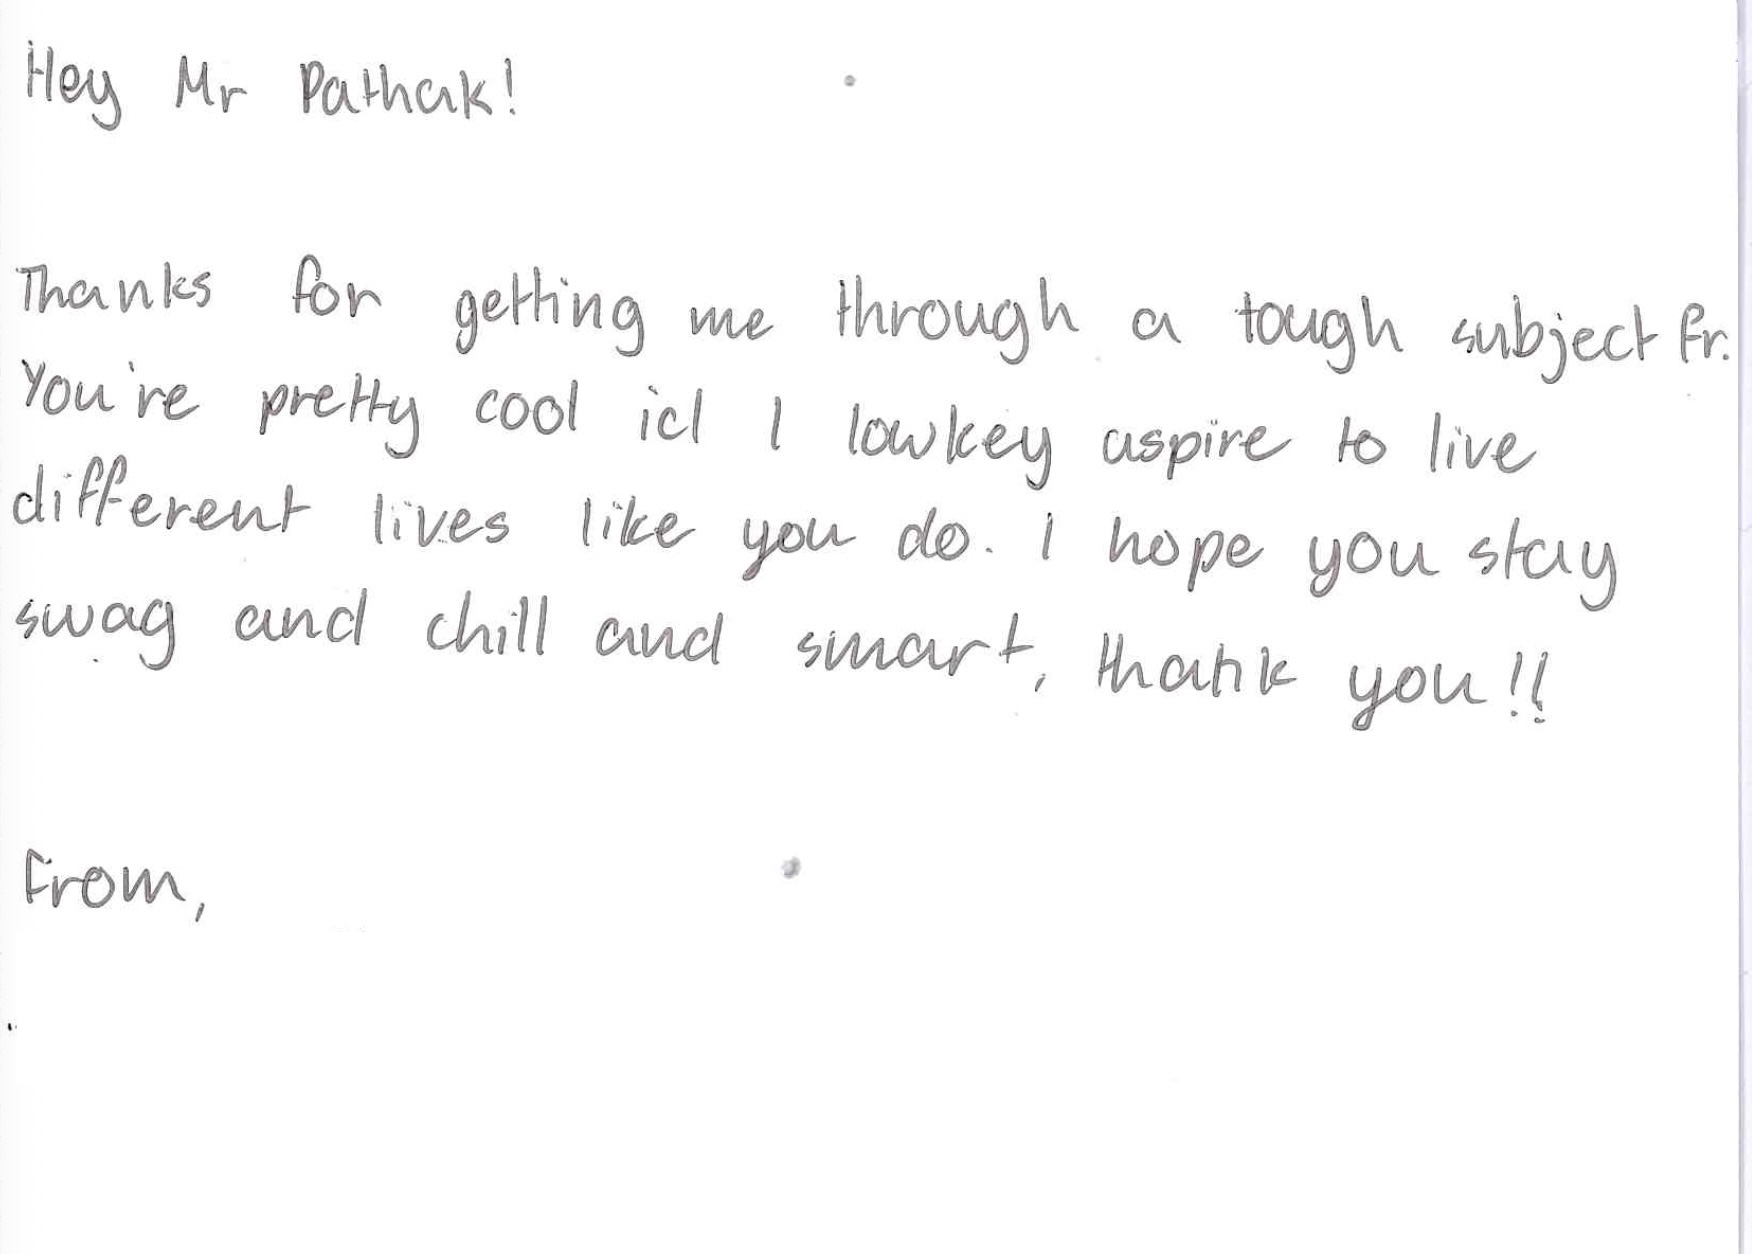 Hey Mr Pathak!
Thanks for getting me through a tough subject fr.
You're pretty cool icl I lowkey aspire to live
different lives like you do. I hope you stay
swag and chill and smart, thank you!!
From,